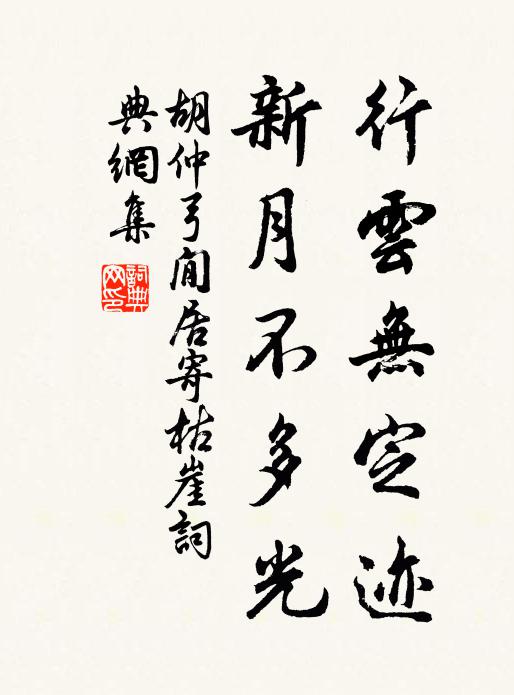 行雲無定迹
新月不多光
胡仲弓閒居寄枯崖詞
典網集
詞典網印